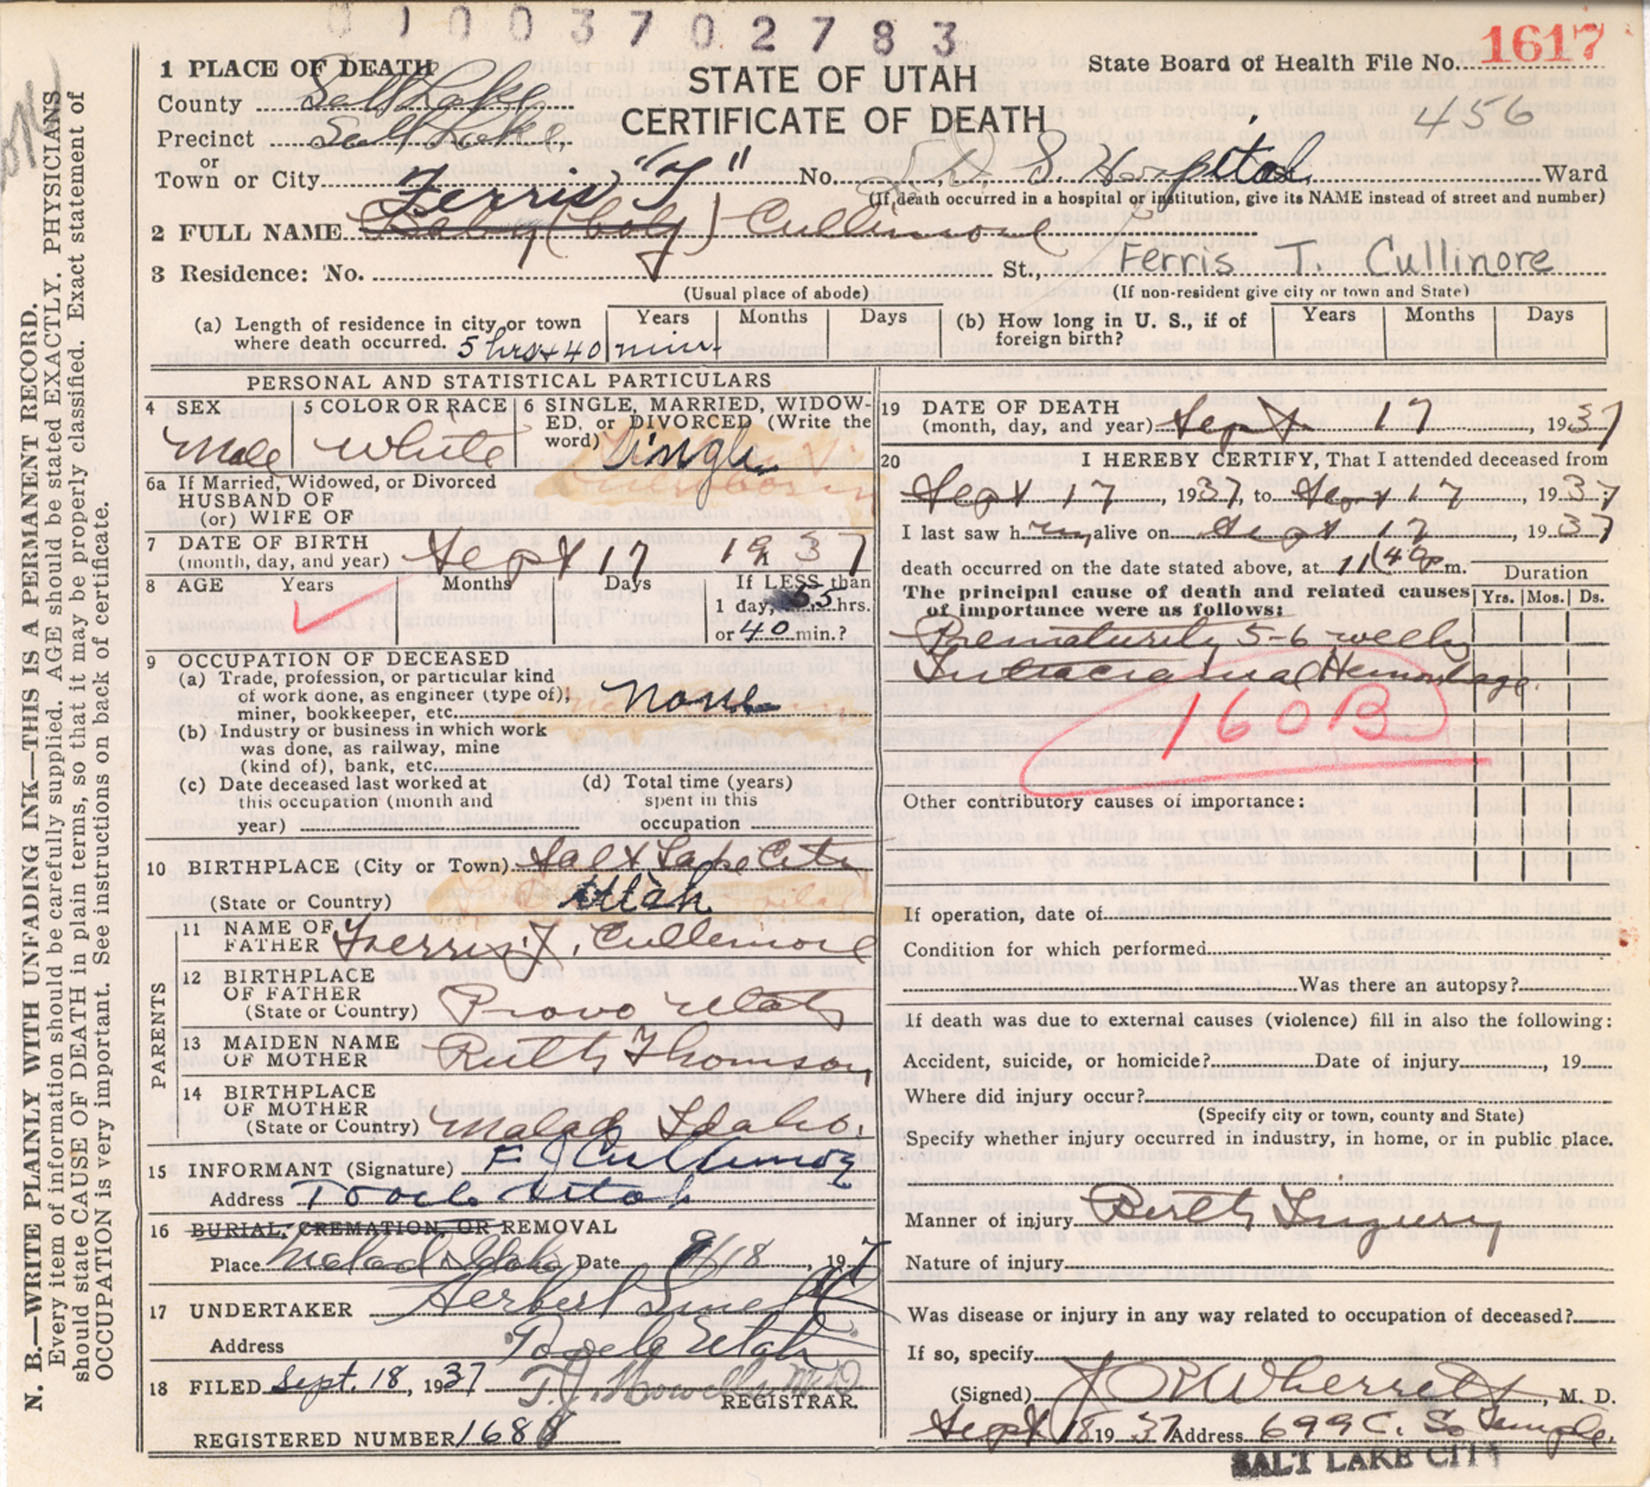 0 1 0 0 3 7 0 2 7 8 3
State Board of Health File No. 1617
456
STATE OF UTAH
CERTIFICATE OF DEATH
1 PLACE OF DEATH
County Salt Lake
Precinct Salt Lake,
or
Town or City No. L. D. S. Hospital Ward
(If death occurred in a hospital or institution, give its NAME instead of street and number)
Ferris "T"
2 FULL NAME Baby (boy) Cullimore
3 Residence: No. St., Ferris T. Cullinore
(Usual place of abode) (If non-resident give city or town and State)
(a) Length of residence in city or town where death occurred. 5 hrs + 40 min. Years Months Days
(b) How long in U. S., if of foreign birth? Years Months Days
PERSONAL AND STATISTICAL PARTICULARS
4 SEX Male
5 COLOR OR RACE White
6 SINGLE, MARRIED, WIDOWED, or DIVORCED (Write the word) Single
6a If Married, Widowed, or Divorced
HUSBAND OF
(or) WIFE OF
7 DATE OF BIRTH
(month, day, and year) Sept 17 1937
8 AGE Years Months Days If LESS than
1 day, 5 hrs.
or 40 min.?
9 OCCUPATION OF DECEASED
(a) Trade, profession, or particular kind
of work done, as engineer (type of),
miner, bookkeeper, etc. None
(b) Industry or business in which work
was done, as railway, mine
(kind of), bank, etc.
(c) Date deceased last worked at
this occupation (month and
year)
(d) Total time (years)
spent in this
occupation
10 BIRTHPLACE (City or Town) Salt Lake City
(State or Country) Utah
PARENTS
11 NAME OF
FATHER Ferris J. Cullemore
12 BIRTHPLACE
OF FATHER
(State or Country) Provo Utah
13 MAIDEN NAME
OF MOTHER Ruth Thomson
14 BIRTHPLACE
OF MOTHER
(State or Country) Malad Idaho.
15 INFORMANT (Signature) F J Cullimore
Address Tooele Utah
16 BURIAL, CREMATION, OR REMOVAL
Place Malad Idaho Date 9/18, 1937
17 UNDERTAKER Herbert
Address Tooele Utah
18 FILED Sept. 18, 1937 T. J. Howells MD
REGISTRAR.
REGISTERED NUMBER 1688
19 DATE OF DEATH
(month, day, and year) Sept 17, 1937
20 I HEREBY CERTIFY, That I attended deceased from
Sept 17, 1937, to Sept 17, 1937
I last saw him alive on Sept 17, 1937
death occurred on the date stated above, at 11:40 p m.
Duration
The principal cause of death and related causes
of importance were as follows: Yrs. Mos. Ds.
Prematurity 5-6 weeks
Intracranial Hemorrhage.
160B
Other contributory causes of importance:
If operation, date of
Condition for which performed
Was there an autopsy?
If death was due to external causes (violence) fill in also the following:
Accident, suicide, or homicide? Date of injury , 19
Where did injury occur?
(Specify city or town, county and State)
Specify whether injury occurred in industry, in home, or in public place.
Manner of injury Birth Injury
Nature of injury
Was disease or injury in any way related to occupation of deceased?
If so, specify
(Signed) Wherritt, M. D.
Sept 18 1937 Address 699 E. So Temple.
SALT LAKE CITY
N. B.—WRITE PLAINLY WITH UNFADING INK—THIS IS A PERMANENT RECORD.
Every item of information should be carefully supplied. AGE should be stated EXACTLY. PHYSICIANS
should state CAUSE OF DEATH in plain terms, so that it may be properly classified. Exact statement of
OCCUPATION is very important. See instructions on back of certificate.